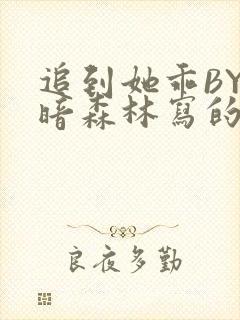 追到她乖BY
暗森林寫的
良夜多勤